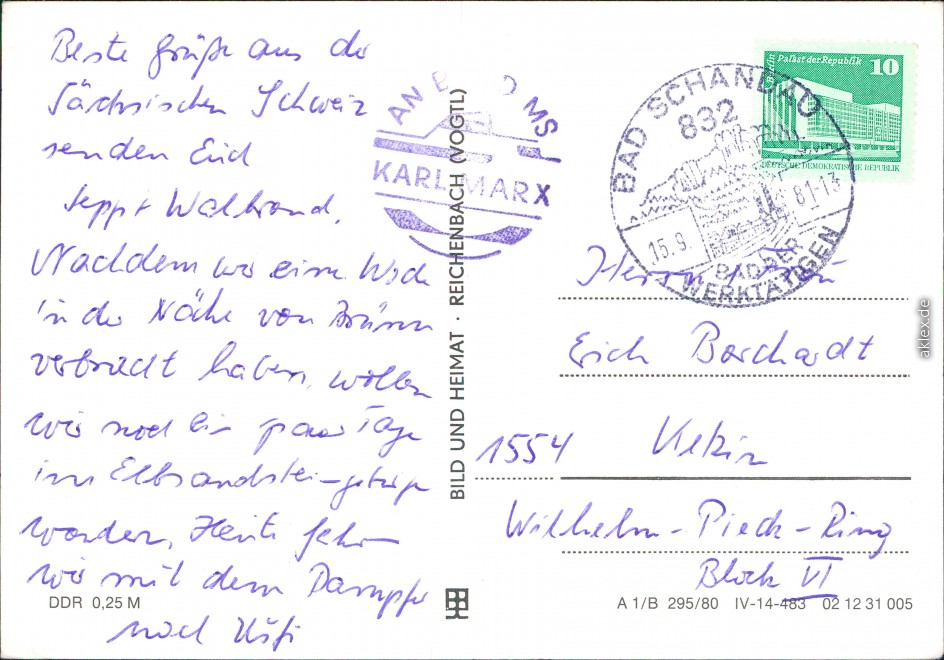 Beste Grüße aus der
Sächsischen Schweiz
senden Euch
Sepp + Waltraud.
Nachdem wir eine Woche
in der Nähe von Brünn
verbracht haben, wollen
wir noch ein paar Tage
im Elbsandstein-gebirge
wandern. Heute fahren
wir mit dem Dampfer
noch
DDR 0,25 M
BILD UND HEIMAT · REICHENBACH (VOGTL)
AN BORD MS
KARL MARX
BAD SCHANDAU
832
15.9. 81-13
BAD DER
WERKTÄTIGEN
Berlin Palast der Republik 10
DEUTSCHE DEMOKRATISCHE REPUBLIK
Herrn + Frau
Erich Borchardt
1554 Ketzin
Wilhelm-Pieck-Ring
Block VI
A 1/B 295/80 IV-14-483 02 12 31 005
aklex.de